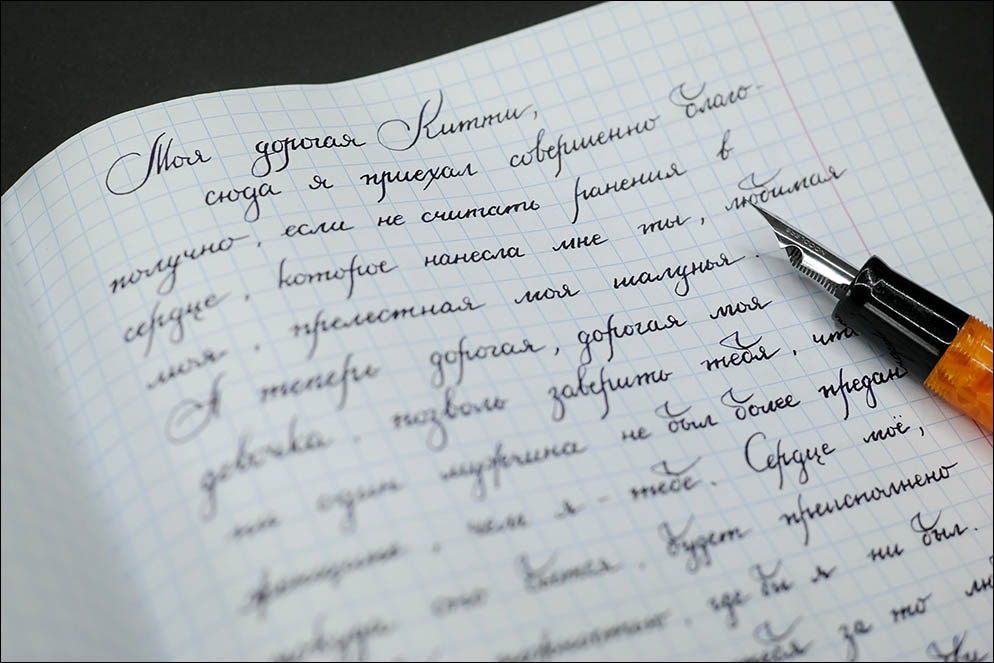 Моя дорогая Китти,
сюда я приехал совершенно благо-
получно, если не считать ранения в
сердце, которое нанесла мне ты, любимая
моя, прелестная моя шалунья.
А теперь дорогая, дорогая моя
девочка, позволь заверить тебя, что
ни один мужчина не был более предан
женщине, чем я - тебе. Сердце моё,
покуда оно бьётся, будет преисполнено
где бы я ни был.
тебя за то